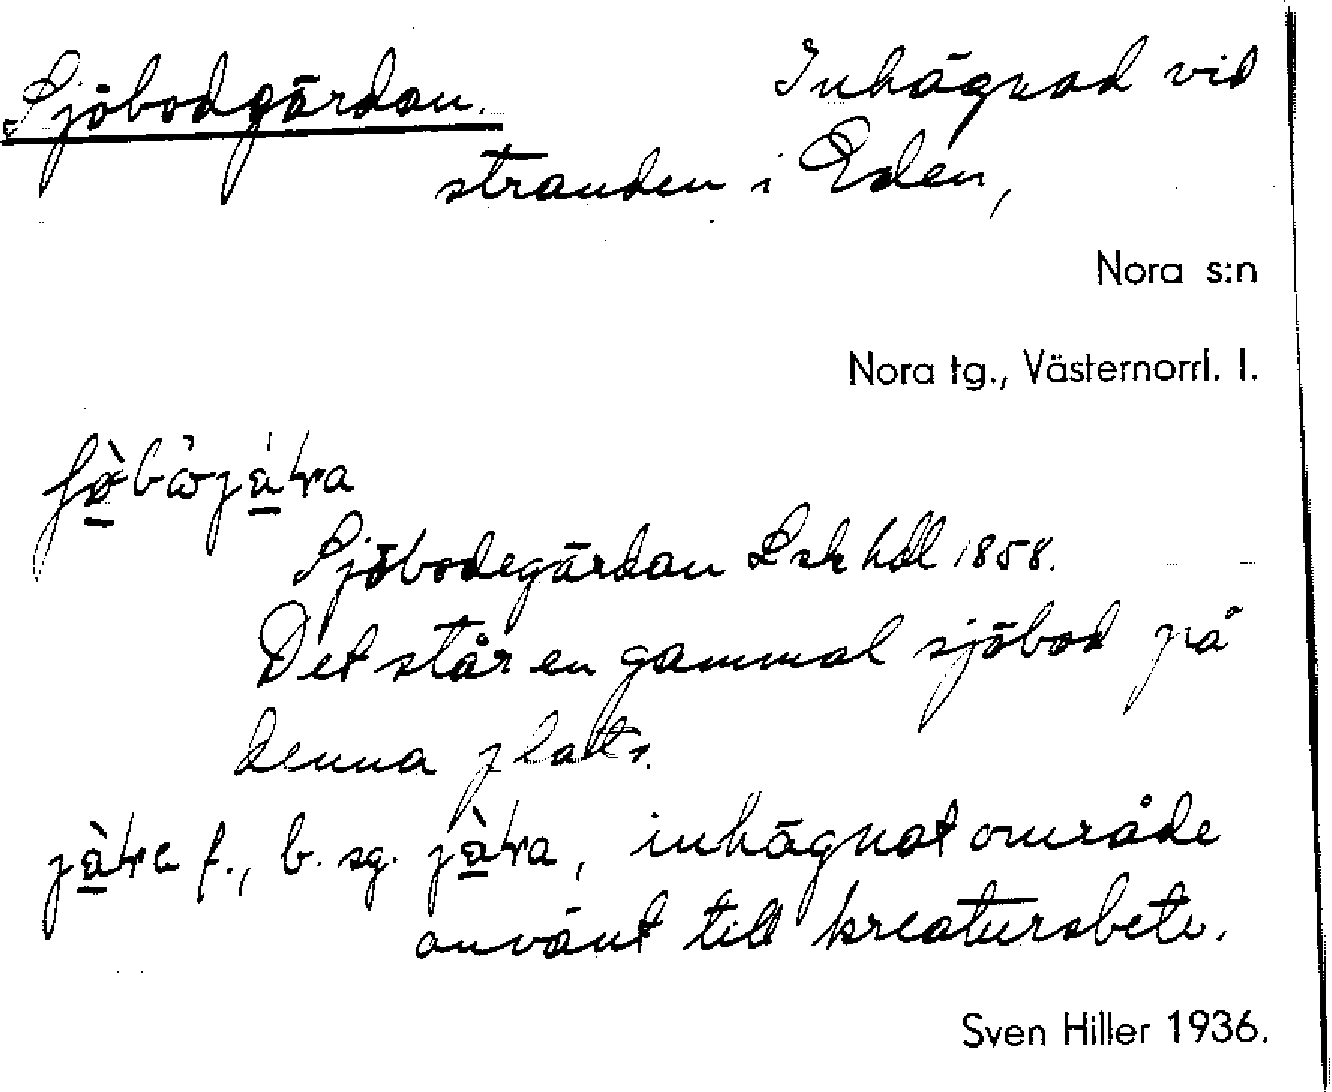 Sjöbodgärdan. Inhägnad vid
stranden i Eden,
Nora s:n
Nora tg., Västernorrl. l.
Sjöbodegärdan Lsk hdl 1858.
Det står en gammal sjöbod på
denna plats.
f., b. sg. inhägnat område
använt till kreatursbete.
Sven Hiller 1936.